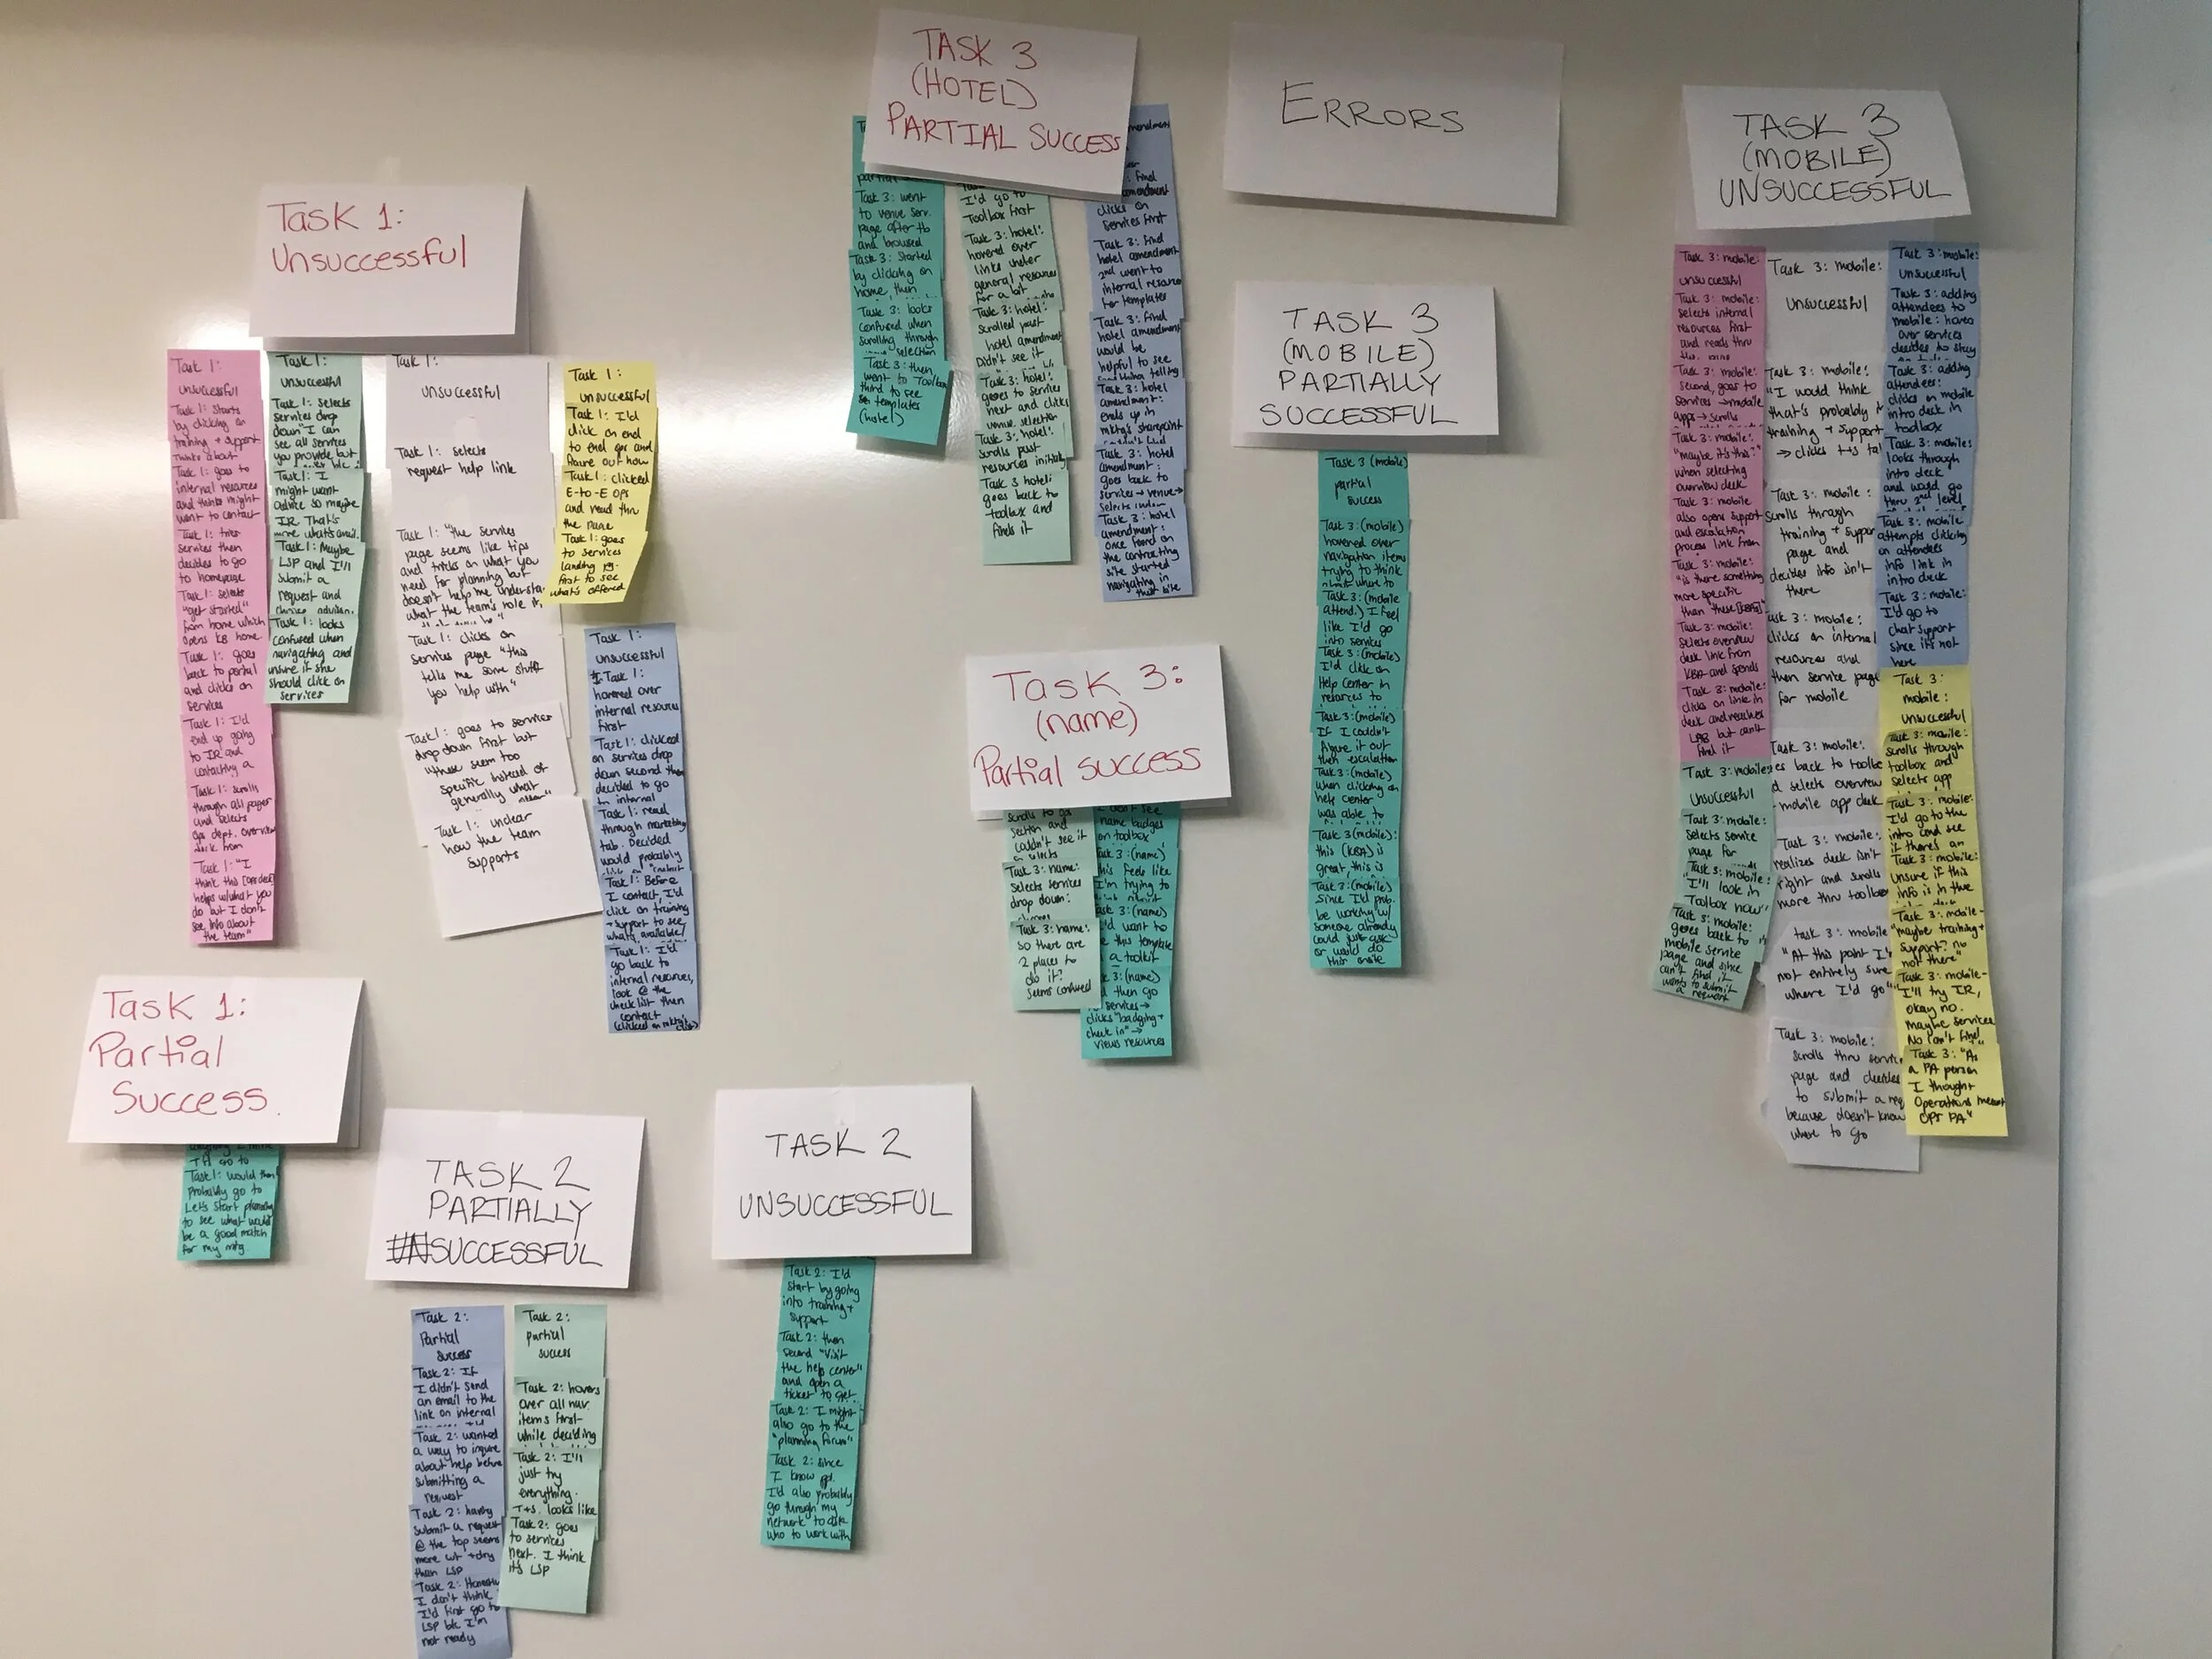 Task 1:
Unsuccessful
Task 1:
unsuccessful
Task 1: Starts
by clicking on
training + support
thinks about
Task 1: goes to
internal resources
and thinks might
want to contact
Task 1: tries
services then
decides to go
to homepage
Task 1: selects
"get started"
from home which
opens KB home.
Task 1: goes
back to portal
and clicks on
services
Task 1: I'd
end up going
to IR and
contacting a
Task 1: scrolls
through all pages
and selects
ops dept. overview
deck from
Task 1: "I
think this [ops deck]
helps w/what you
do but I don't
see info about
the team"
Task 1:
unsuccessful
Task 1: selects
services drop
down "I can
see all services
you provide but
Task 1: I
might want
advice so maybe
IR. That's
more what's avail.
Task 1: Maybe
LSP and I'll
submit a
request and
Task 1: looks
confused when
navigating and
unsure if she
should click on
services
Task 1:
unsuccessful
Task 1: selects
request help link
Task 1: "the services
page seems like tips
and tricks on what you
need for planning but
doesn't help me understa
what the team's role is,
Task 1: clicks on
services page "this
tells me some stuff
you help with"
Task 1: goes to services
drop down first but
these seem too
specific instead of
generally what
Task 1: unclear
how the team
supports
Task 1:
unsuccessful
Task 1: I'd
click on end
to end ops and
figure out how
Task 1: clicked
E-to-E OPS
and read thru
the page
Task 1: goes
to services
landing pg.
first to see
what's offered
Task 1:
unsuccessful
Task 1:
hovered over
internal resources
first
Task 1: clicked
on services drop
down second then
decided to go
to internal
Task 1: read
through marketing
tab. Decided
would probably
Task 1: Before
I contact, I'd
click on training
+ support to see
what's available/
Task 1: I'd
go back to
internal resources,
look @ the
checklist then
contact
Task 1:
Partial
Success.
I'll go to
Task 1: would then
probably go to
Let's start planning
to see what would
be a good match
for my mtg
TASK 2
PARTIALLY
SUCCESSFUL
Task 2:
Partial
success
Task 2: If
I didn't send
an email to the
link on internal
Task 2: wanted
a way to inquire
about help before
submitting a
request
Task 2: having
submit a request
@ the top seems
more cut + dry
than LSP
Task 2: Honestly
I don't think
I'd first go to
LSP b/c I'm
not ready
Task 2:
partial
success
Task 2: hovers
over all nav.
items first
while deciding
Task 2: I'll
just try
everything.
T+S. looks like
Task 2: goes
to services
next. I think
it's LSP
TASK 2
UNSUCCESSFUL
Task 2: I'd
start by going
into training +
support
Task 2: then
second "Visit
the help center"
and open a
ticket to get
Task 2: I might
also go to the
"planning forum"
Task 2: Since
I know ppl.
I'd also probably
go through my
network to ask
who to work with
TASK 3
(HOTEL)
PARTIAL SUCCESS
Task 3: went
to venue serv.
page after tb
and browsed
Task 3: Started
by clicking on
home, then
Task 3: looks
confused when
scrolling through
selection
Task 3: then
went to Toolbox
third to see
templates
(hotel)
I'd go to
Toolbox first
Task 3: hotel:
hovered over
links under
general resources
for a bit
Task 3: hotel:
scrolled past
hotel amendment
Didn't see it
Task 3: hotel:
goes to services
next and clicks
venue selection
Task 3: hotel:
scrolls past
resources initially
Task 3 hotel:
goes back to
toolbox and
finds it
clicks on
services first
Task 3: find
hotel amendment
2nd went to
internal resources
for templates
Task 3: find
hotel amendment
would be
helpful to see
Task 3: hotel
amendment:
ends up in
mktg's sharepoint
Task 3: hotel
amendment:
goes back to
services → venue →
Task 3: hotel
amendment:
once found on
the contracting
site started
navigating in
that site
Task 3:
(name)
Partial success
section and
couldn't see it
Task 3: name:
Selects services
drop down:
Task 3: name:
so there are
2 places to
do it?
seems confused
name badges
on toolbox
3: (name)
this feels like
I'm trying to
3: (name)
want to
this template
a toolkit
3: (name)
then go
services →
clicks "badging +
check in" →
views resources
ERRORS
TASK 3
(MOBILE)
PARTIALLY
SUCCESSFUL
Task 3 (mobile)
partial
success
Task 3: (mobile)
hovered over
navigation items
trying to think
about where to
Task 3: (mobile
attend.) I feel
like I'd go
into services
Task 3: (mobile)
I'd click on
Help Center in
resources to
Task 3: (mobile)
If I couldn't
figure it out
then escalation
Task 3: (mobile)
when clicking on
help center
was able to
Task 3 (mobile):
this (KBA) is
great, this is
Task 3: (mobile)
Since I'd prob.
be working w/
someone already
could just ask
or would do
this onsite
TASK 3
(MOBILE)
UNSUCCESSFUL
Task 3: mobile:
unsuccessful
Task 3: mobile:
selects internal
resources first
and reads thru
Task 3: mobile:
second, goes to
services → mobile
apps → scrolls
Task 3: mobile:
"maybe it's this"
when selecting
overview deck
Task 3: mobile
also opens support
and escalation
process link from
Task 3: mobile:
"is there something
more specific
than these [KBAs]"
Task 3: mobile:
selects overview
deck link from
KBA and spends
Task 3: mobile:
clicks on link in
deck and reaches
but can't
find it
Task 3: mobile:
unsuccessful
Task 3: mobile:
selects service
page for
Task 3: mobile:
"I'll look in
Toolbox now"
Task 3: mobile:
goes back to
mobile service
page and since
can't find it
wants to submit
a request
Task 3: mobile:
Unsuccessful
Task 3: mobile:
"I would think
that's probably
training + support
→ clicks t+s
Task 3: mobile:
scrolls through
training + support
page and
decides info isn't
there
Task 3: mobile:
clicks on internal
resources and
then service page
for mobile
Task 3: mobile:
goes back to
selects overview
mobile app deck
Task 3: mobile:
realizes deck isn't
right and scrolls
more thru
Task 3: mobile
"At this point I'm
not entirely sure
where I'd go"
Task 3: mobile:
scrolls thru service
page and decides
to submit a req
because doesn't know
where to go
Task 3: mobile:
Unsuccessful
Task 3: adding
attendees to
mobile: hovers
over services
decides to stay
Task 3: adding
attendees:
clicks on mobile
intro deck in
toolbox
Task 3: mobile:
looks through
intro deck
and would go
thru 2nd level
Task 3: mobile
attempts clicking
on attendees
info link in
intro deck
Task 3: mobile:
I'd go to
chat support
since it's not
here
Task 3:
mobile:
unsuccessful
Task 3: mobile:
scrolls through
toolbox and
selects app
Task 3: mobile:
I'd go to the
intro and see
if there's an
Task 3: mobile:
unsure if this
info is in the
Task 3: mobile-
"maybe training +
support? no
not there"
Task 3: mobile-
I'll try IR,
okay no.
maybe services
No can't find
Task 3: "As
a PA person
I thought
Operations meant
OPS PA"